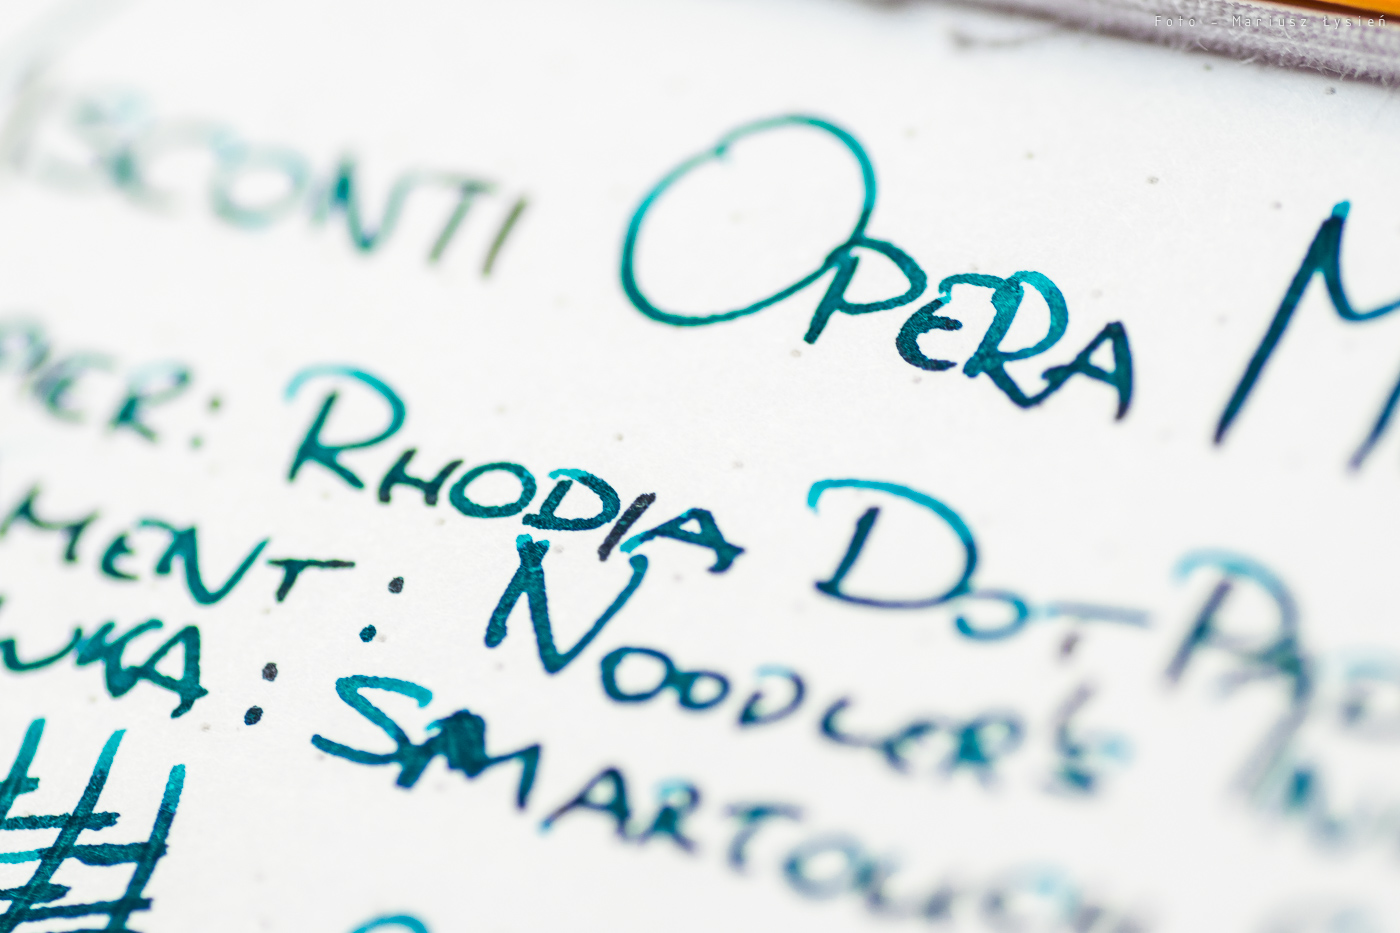 Foto - Mariusz Łysień
ISCONTI OPERA M
PER: RHODIA DOT-PAD
MENT: NOODLER'S
WKA: SMARTOUCH